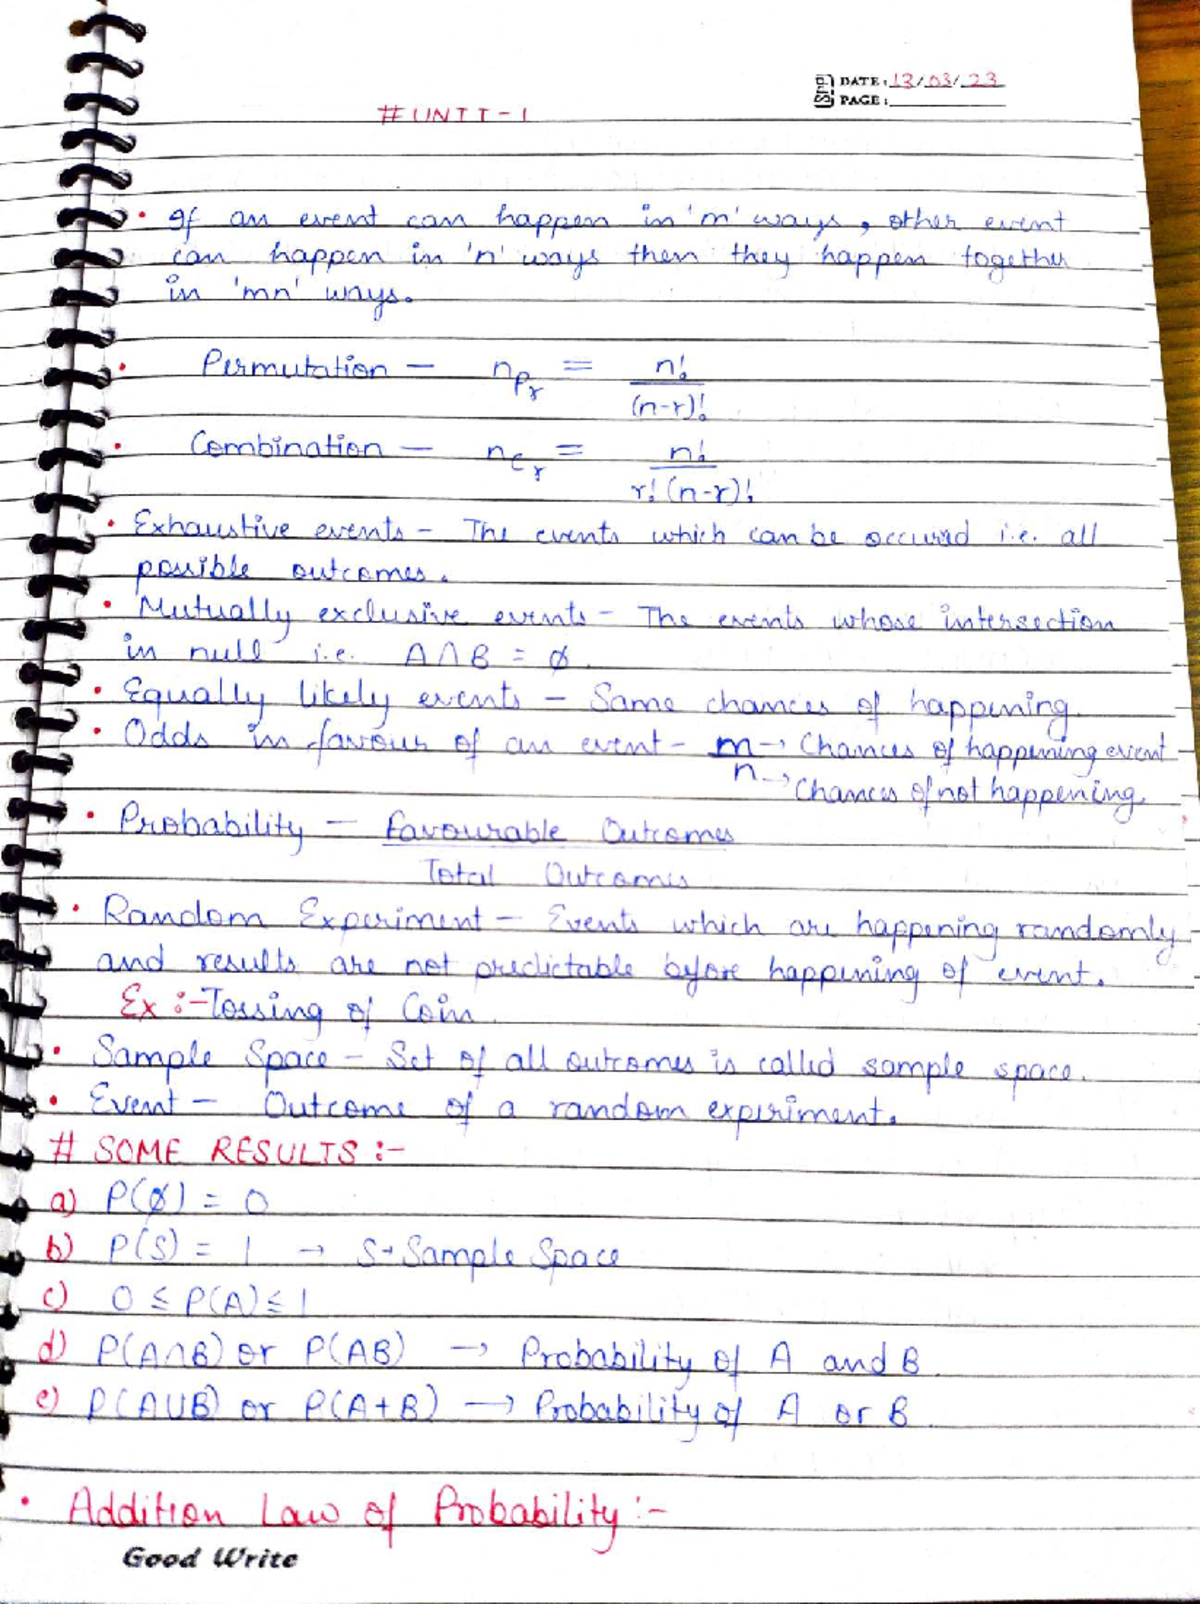 DATE: 13/03/23
PAGE:
# UNIT-1
• If an event can happen in 'm' ways, other event
can happen in 'n' ways then they happen together
in 'mn' ways.
• Permutation — nPr = n!/(n-r)!
• Combination — nCr = n!/r!(n-r)!
• Exhaustive events - The events which can be occured i.e. all
possible outcomes.
• Mutually exclusive events - The events whose intersection
in null i.e. A∩B = ϕ.
• Equally likely events - Same chances of happening.
• Odds in favour of an event - m → Chances of happening event
n → Chances of not happening.
• Probability — Favourable Outcomes
Total Outcomes
• Random Experiment - Events which are happening randomly
and results are not predictable before happening of event.
Ex :- Tossing of Coin.
• Sample Space - Set of all outcomes is called sample space.
• Event - Outcome of a random experiment.
# SOME RESULTS :-
a) P(ϕ) = 0
b) P(S) = 1 → S→Sample Space
c) 0 ≤ P(A) ≤ 1
d) P(A∩B) or P(AB) → Probability of A and B.
e) P(A∪B) or P(A+B) → Probability of A or B.
• Addition Law of Probability :-
Good Write